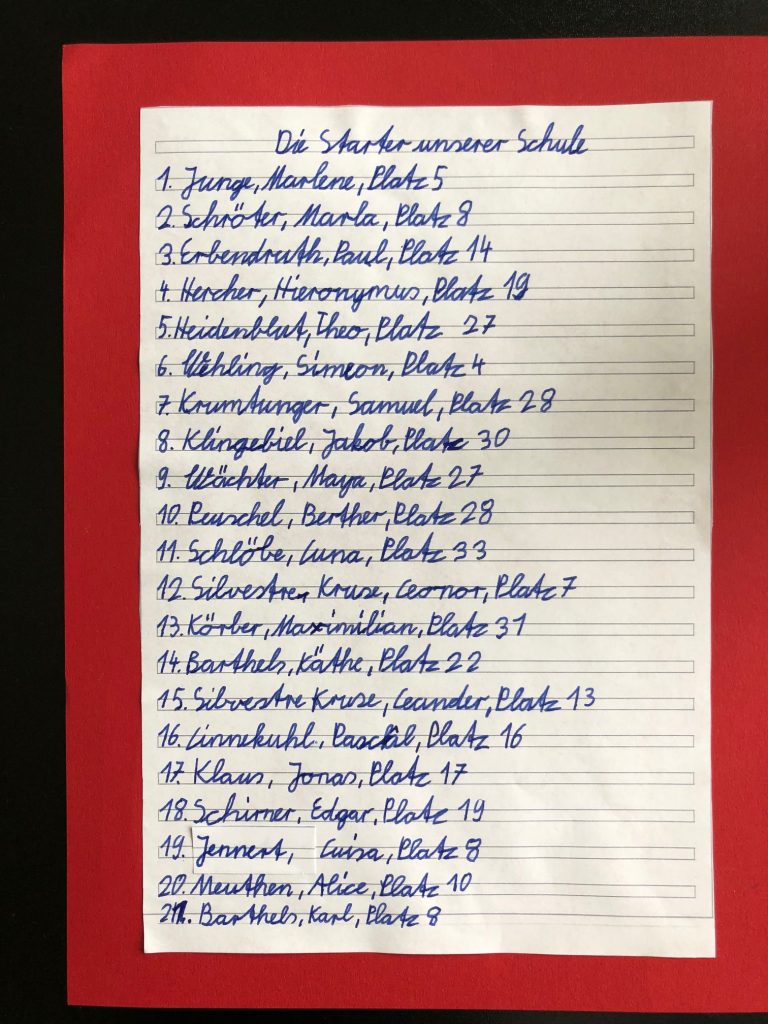 Die Starter unserer Schule
1. Junge, Marlene, Platz 5
2. Schröter, Marla, Platz 8
3. Erbendruth, Paul, Platz 14
4. Hercher, Hieronymus, Platz 19
5. Heidenblut, Theo, Platz 27
6. Wehling, Simeon, Platz 4
7. Krumtunger, Samuel, Platz 28
8. Klingebiel, Jakob, Platz 30
9. Wächter, Maya, Platz 27
10. Reuschel, Berther, Platz 28
11. Schlöbe, Luna, Platz 33
12. Silvestre Kruse, Leonor, Platz 7
13. Körber, Maximilian, Platz 31
14. Barthels, Käthe, Platz 22
15. Silvestre Kruse, Leander, Platz 13
16. Linnekuhl, Pascal, Platz 16
17. Klaus, Jonas, Platz 17
18. Schirner, Edgar, Platz 19
19. Jennert, Luisa, Platz 8
20. Meuthen, Alice, Platz 10
21. Barthels, Karl, Platz 8